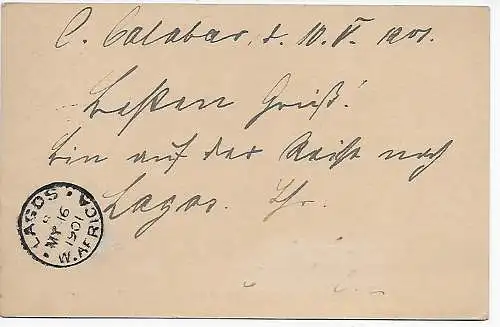 C. Calabar, d. 10. V. 1901.
Besten Gruß!
bin auf der Reise nach
Lagos. Ihr.
LAGOS
MY 16
1901
W. AFRICA